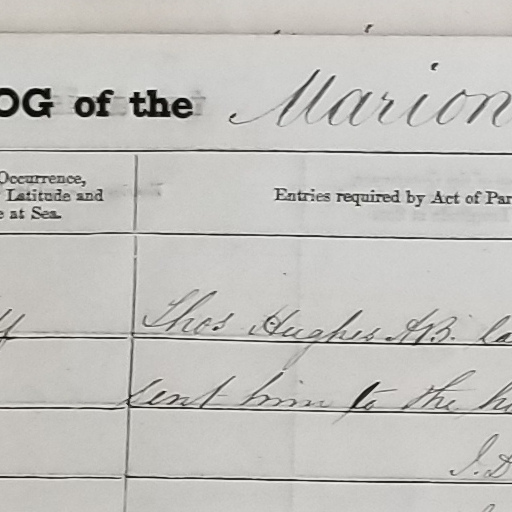 OG of the Marion
Occurrence,
Latitude and
at Sea.
Entries required by Act of Par
Thos Hughes A.B.
sent him to the